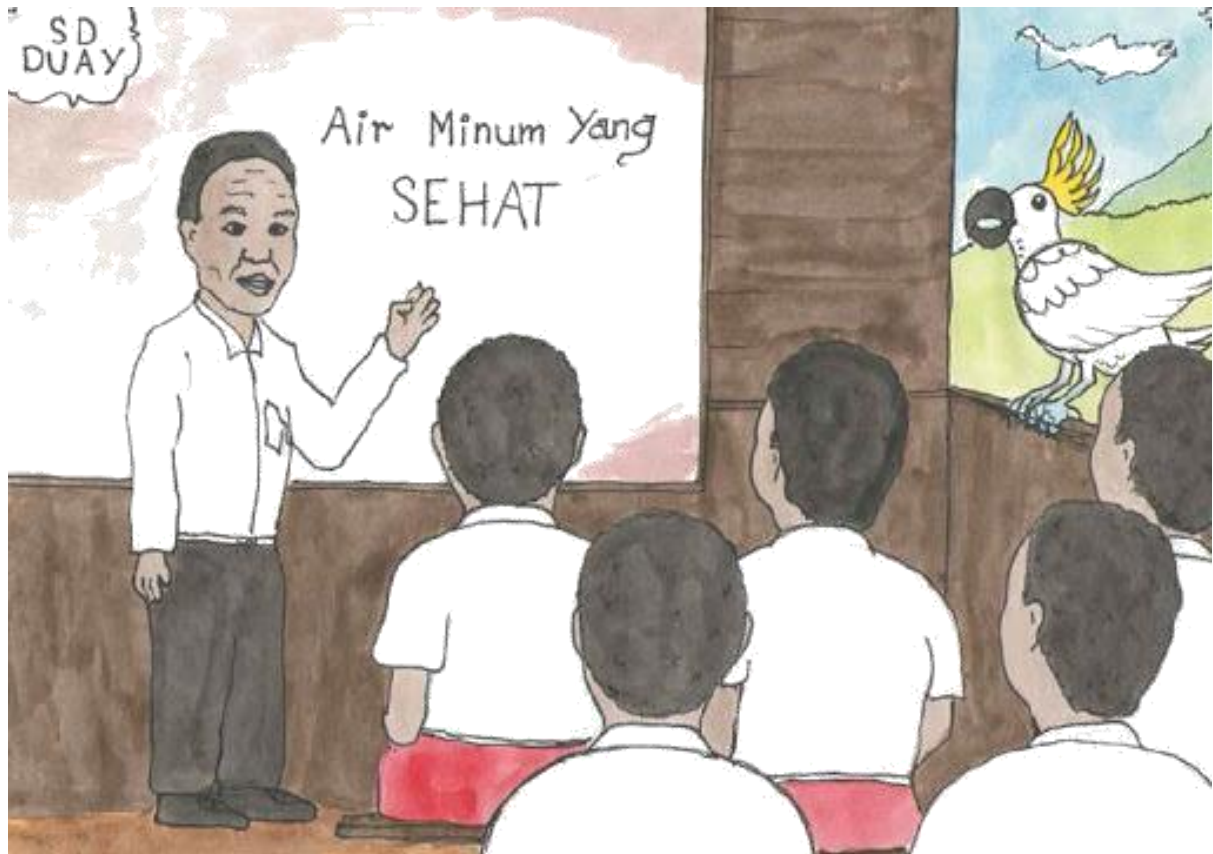 SD
DUAY
Air Minum Yang
SEHAT